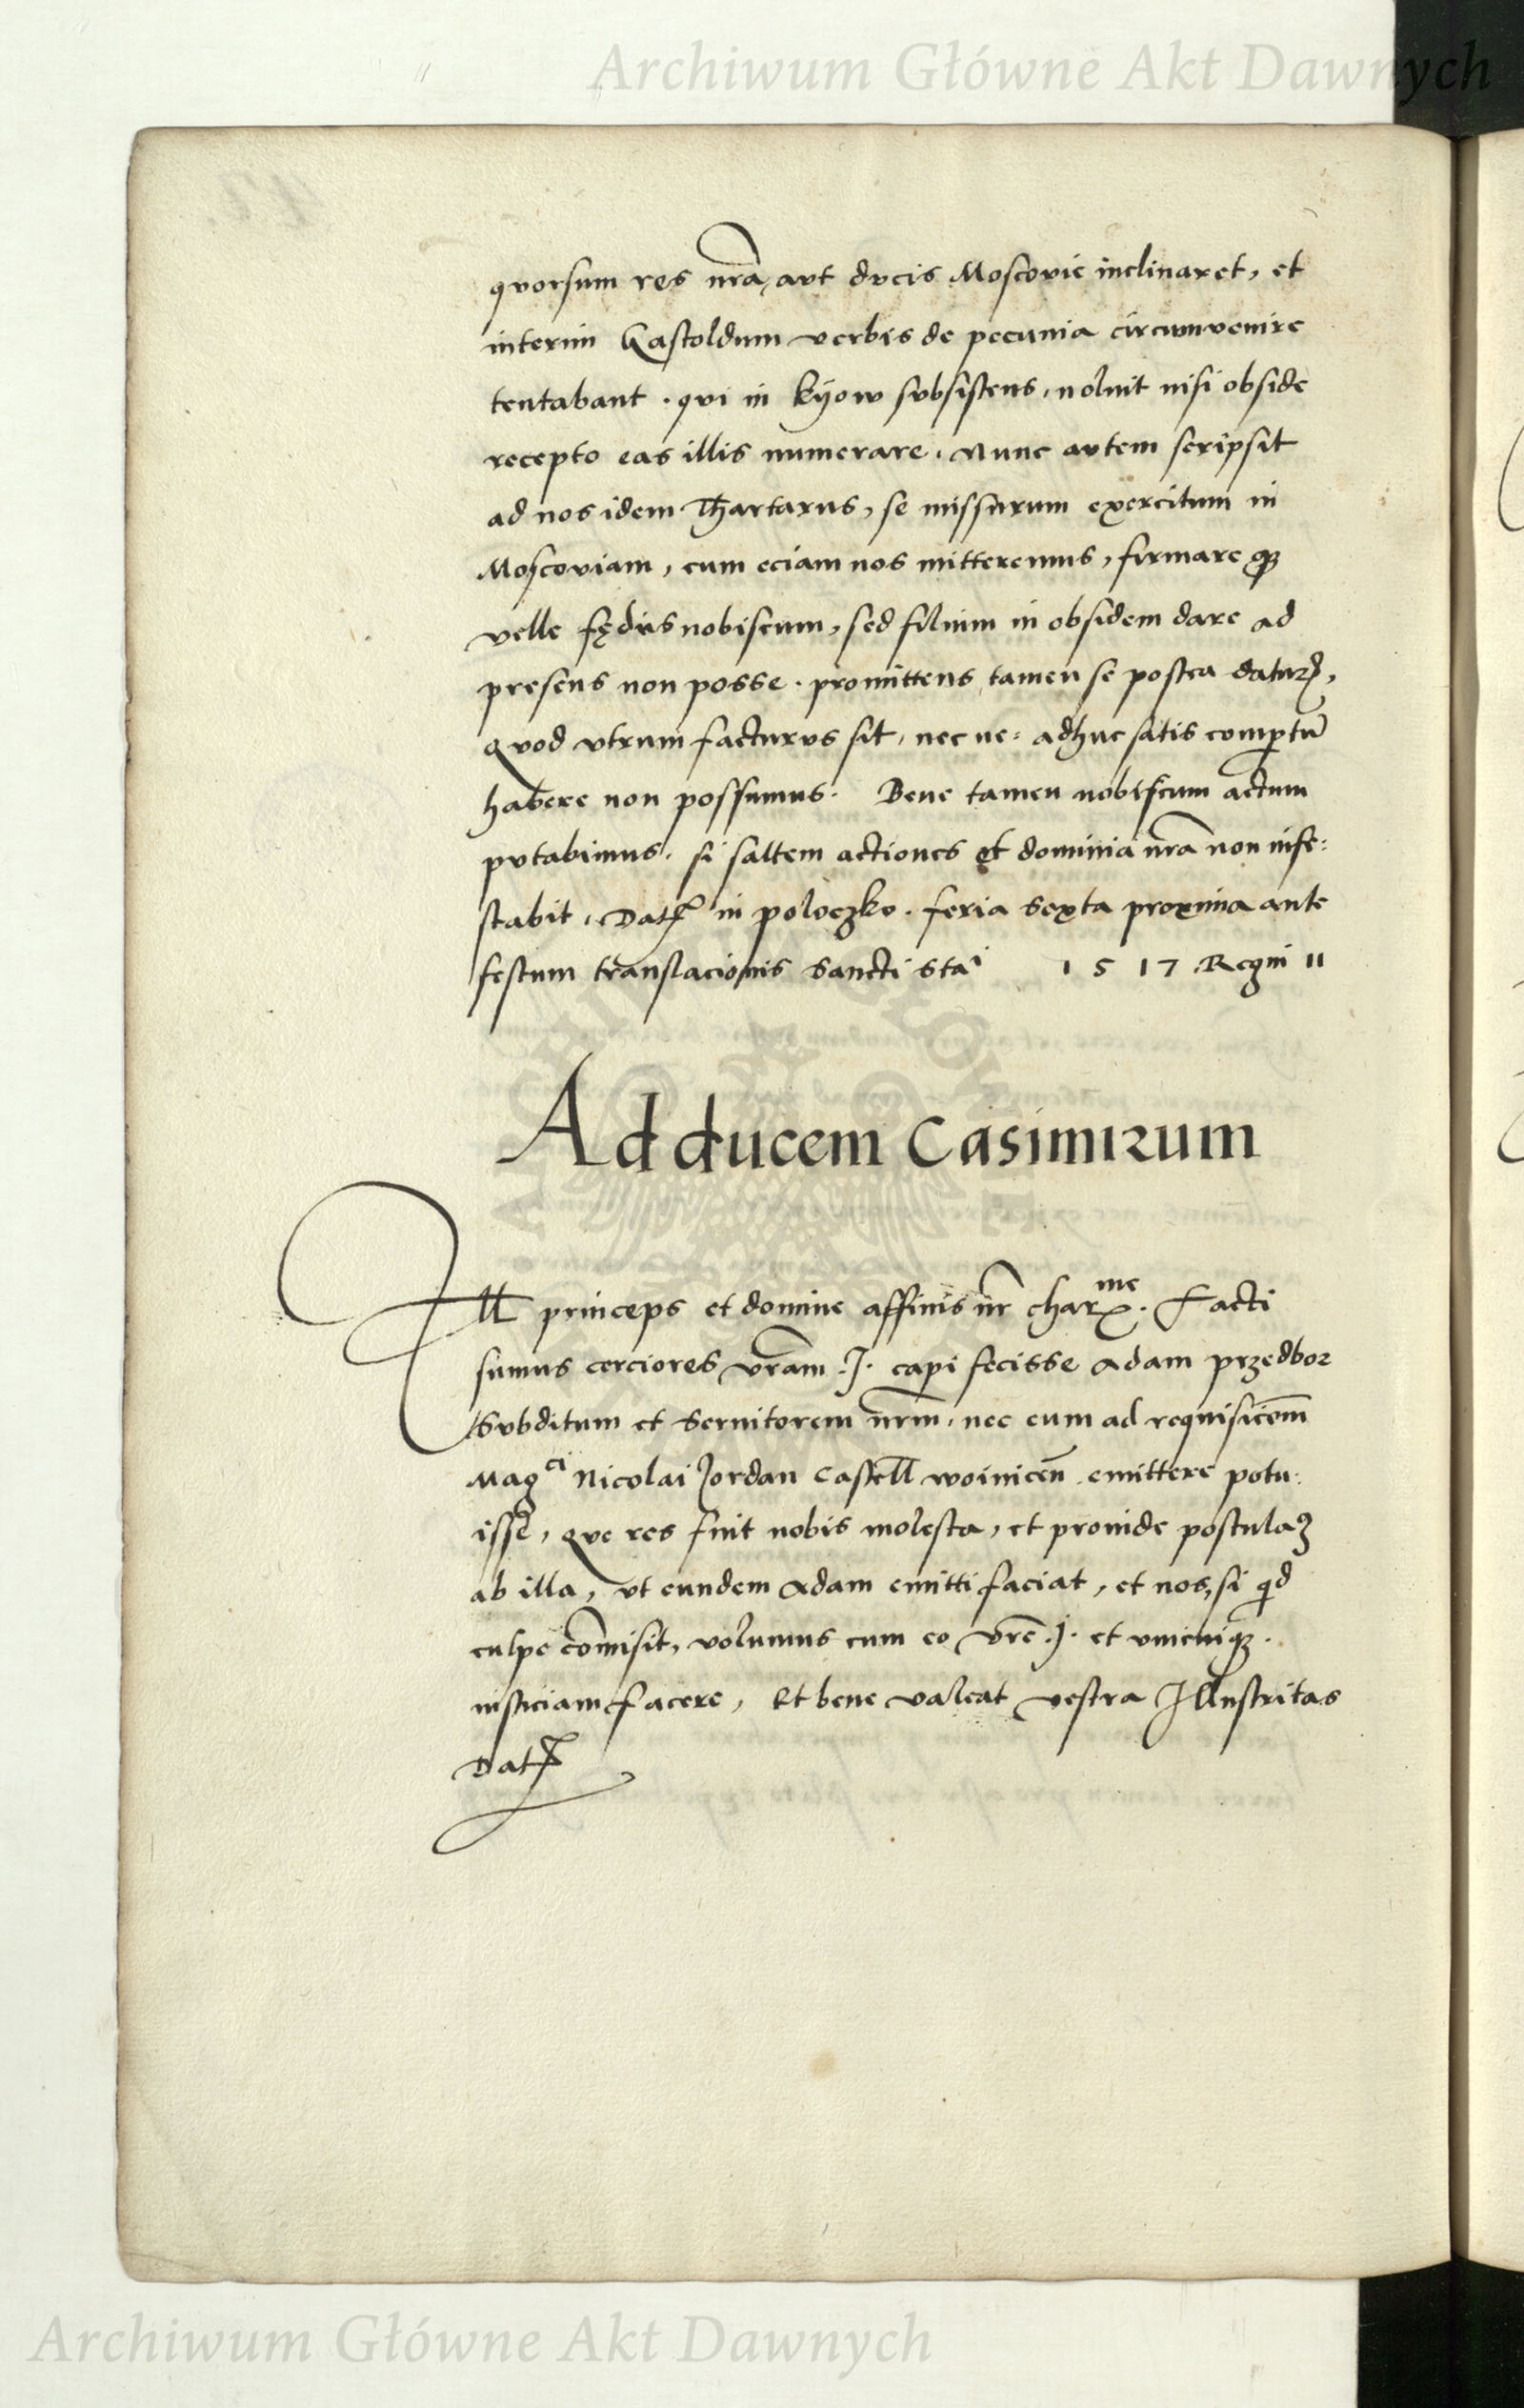 Archiwum Główne Akt Dawnych
qvorsum res nr̃a, avt dvcis Moscovie inclinaret, et
interim Gastoldum verbis de pecunia circumvenire
tentabant. qvi in Kÿow svbsistens, noluit nisi obside
recepto eas illis numerare. Nunc avtem scripsit
ad nos idem Thartarus, se missurum exercitum in
Moscoviam, cum eciam nos mitteremus, firmare qȝ
velle fędus nobiscum, sed filium in obsidem dare ad
presens non posse. promittens tamen se postea daturꝝ,
qvod vtrum facturvs sit, nec ne: adhuc satis comꝑtũ
habere non possumus. Bene tamen nobiscum actum
pvtabimus. si saltem actiones et dominia nr̃a non infe:
stabit. Datꝭ in poloczko. feria sexta proxima ante
festum translacionis Sancti Staⁱ 1517 Regni 11
Ad ducem Casimirum
Ill̃ princeps et domine affinis nr̃ charᵐᵉ. Facti
sumus cerciores vr̃am .I. capi fecisse Adam przedbor
Svbditum et Servitorem nr̃m, nec eum ad requisicõem
Magᶜⁱ Nicolai Jordan Castell̃ woiniceñ emittere potu:
isse, qve res fuit nobis molesta, et proinde postulaȝ
ab illa, vt eundem Adam emitti faciat, et nos, si qd
culpe com̃isit, volumus cum eo vr̃e .I. et vnicuiqȝ.
iusticiam facere, Et bene valeat vestra Illustritas
Datꝭ
Archiwum Główne Akt Dawnych